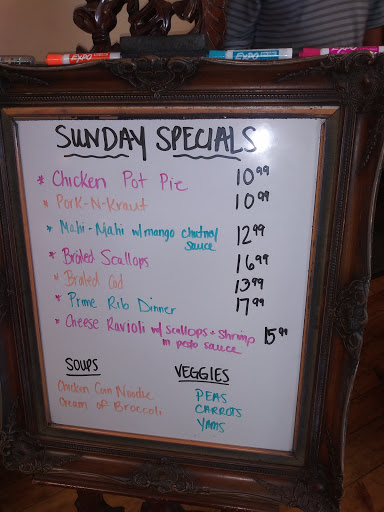 EXPO
EXPO
EXPO
SUNDAY SPECIALS
* Chicken Pot Pie 10.99
* Pork-N-Kraut 10.99
* Mahi-Mahi w/mango chutney 12.99
sauce
* Broiled Scallops 16.99
* Broiled Cod 13.99
* Prime Rib Dinner 17.99
* Cheese Ravioli w/ scallops + Shrimp 15.99
in pesto sauce
SOUPS
Chicken Corn Noodle
Cream of Broccoli
VEGGIES
PEAS
CARROTS
YAMS